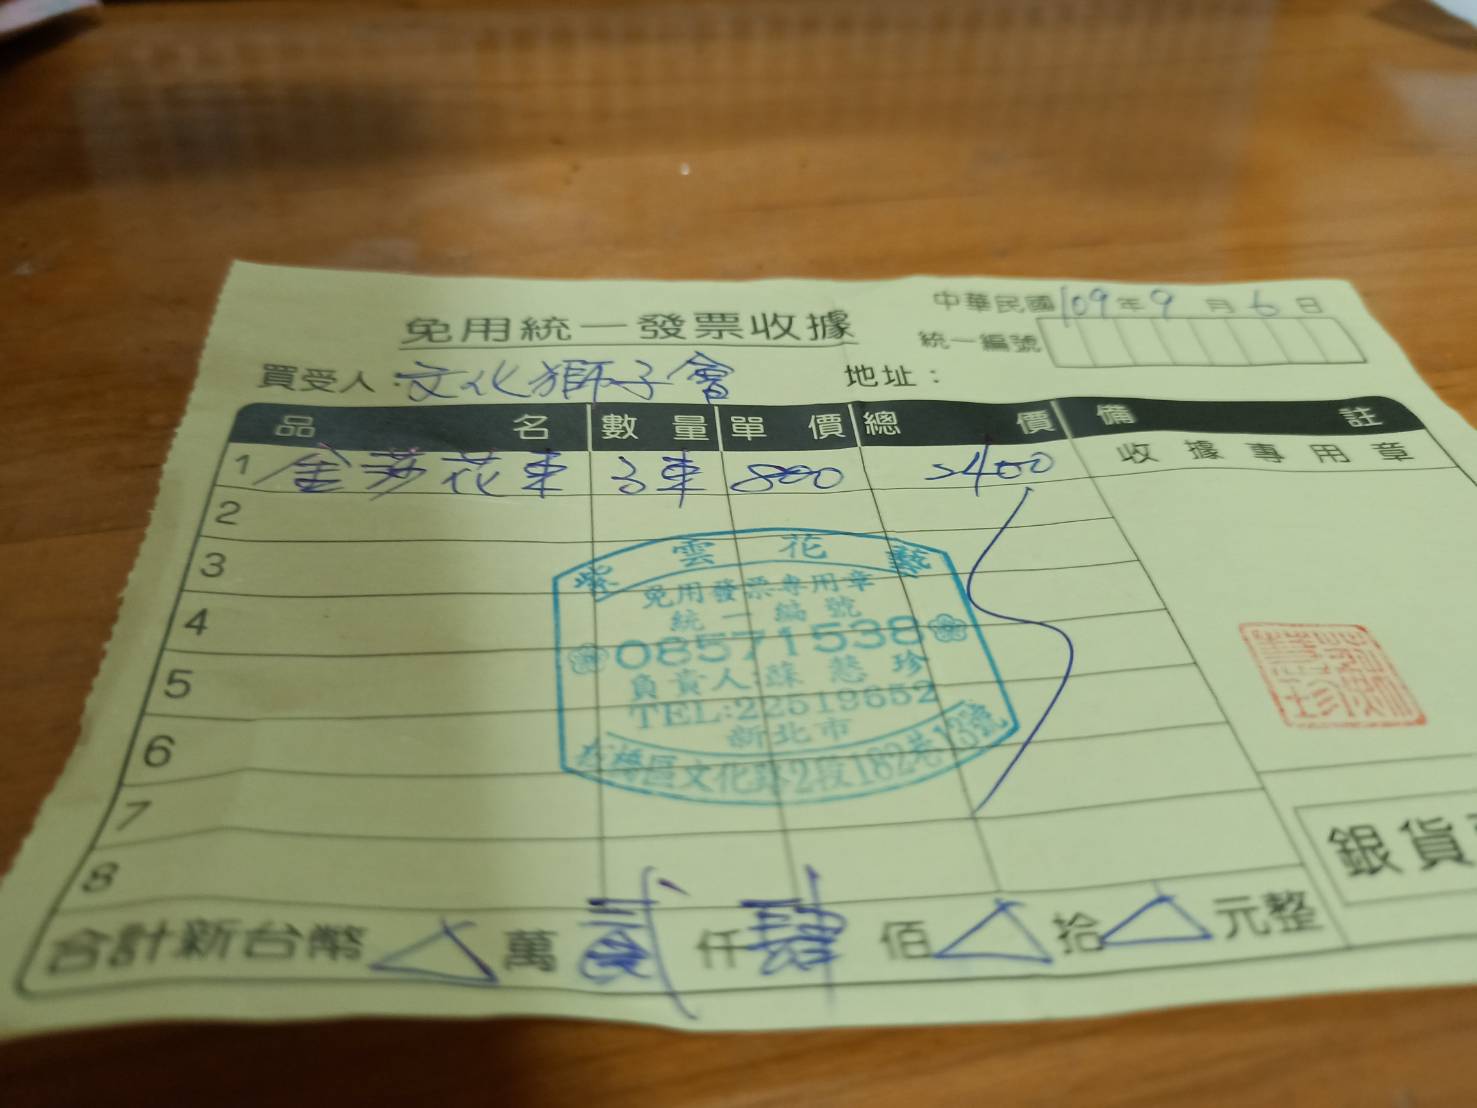 中華民國109年9月6日
免用統一發票收據
統一編號
買受人：文化獅子會 地址：
品名 數量 單價 總價 備註
1 金莎花束 3束 800 2400 收據專用章
2
3
4
5
6
7
8
紫雲花藝
免用發票專用章
統一編號
08571538
負責人:蘇慧珍
TEL:22519652
新北市
板橋區文化路2段182巷13號
銀貨
合計新台幣△萬貳仟肆佰△拾△元整